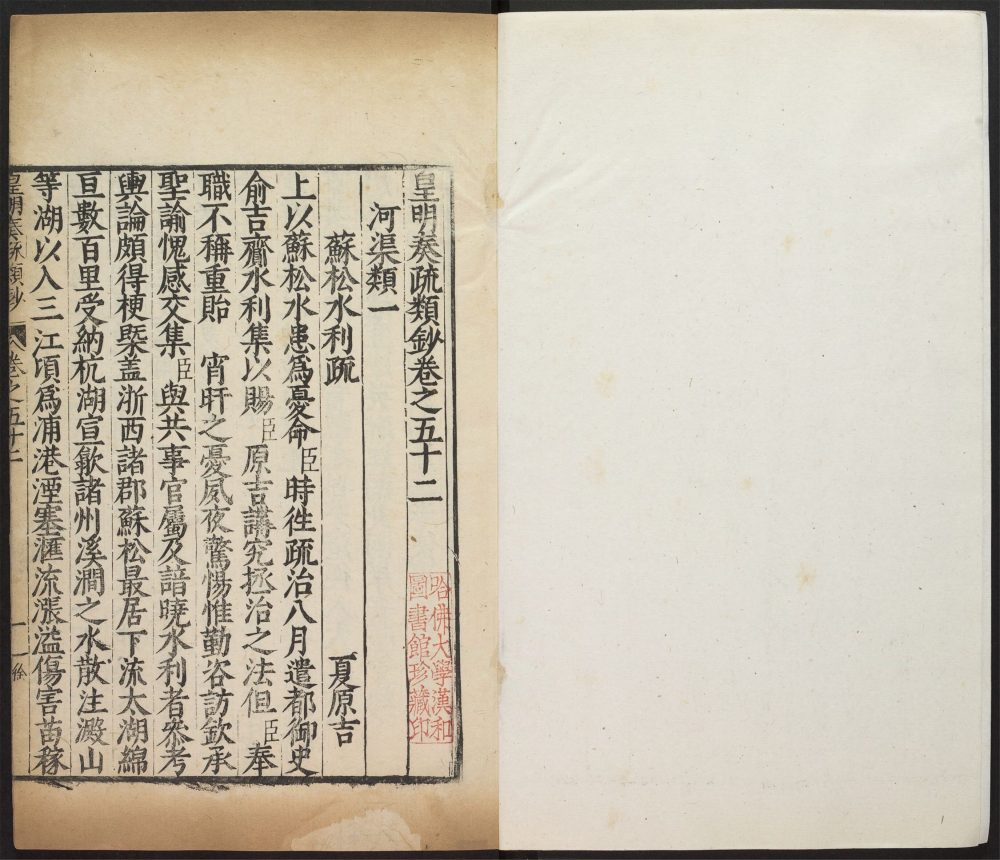 皇明奏疏類鈔卷之五十二
河渠類一
蘇松水利疏
夏原吉
上以蘇松水患爲憂命臣時徃疏治八月遣都御史
俞吉齎水利集以賜臣原吉講究拯治之法但臣奉
職不稱重貽　宵旰之憂夙夜驚惕惟勤咨訪欽承
聖諭愧感交集臣與共事官屬及諳曉水利者叅考
輿論頗得梗槩盖浙西諸郡蘇松最居下流太湖綿
亘數百里受納杭湖宣歙諸州溪澗之水散注澱山
等湖以入三江頃爲浦港湮塞滙流漲溢傷害苗稼
皇明奏疏類鈔
卷之五十二
一
徐
哈佛大學漢和
圖書館珍藏印